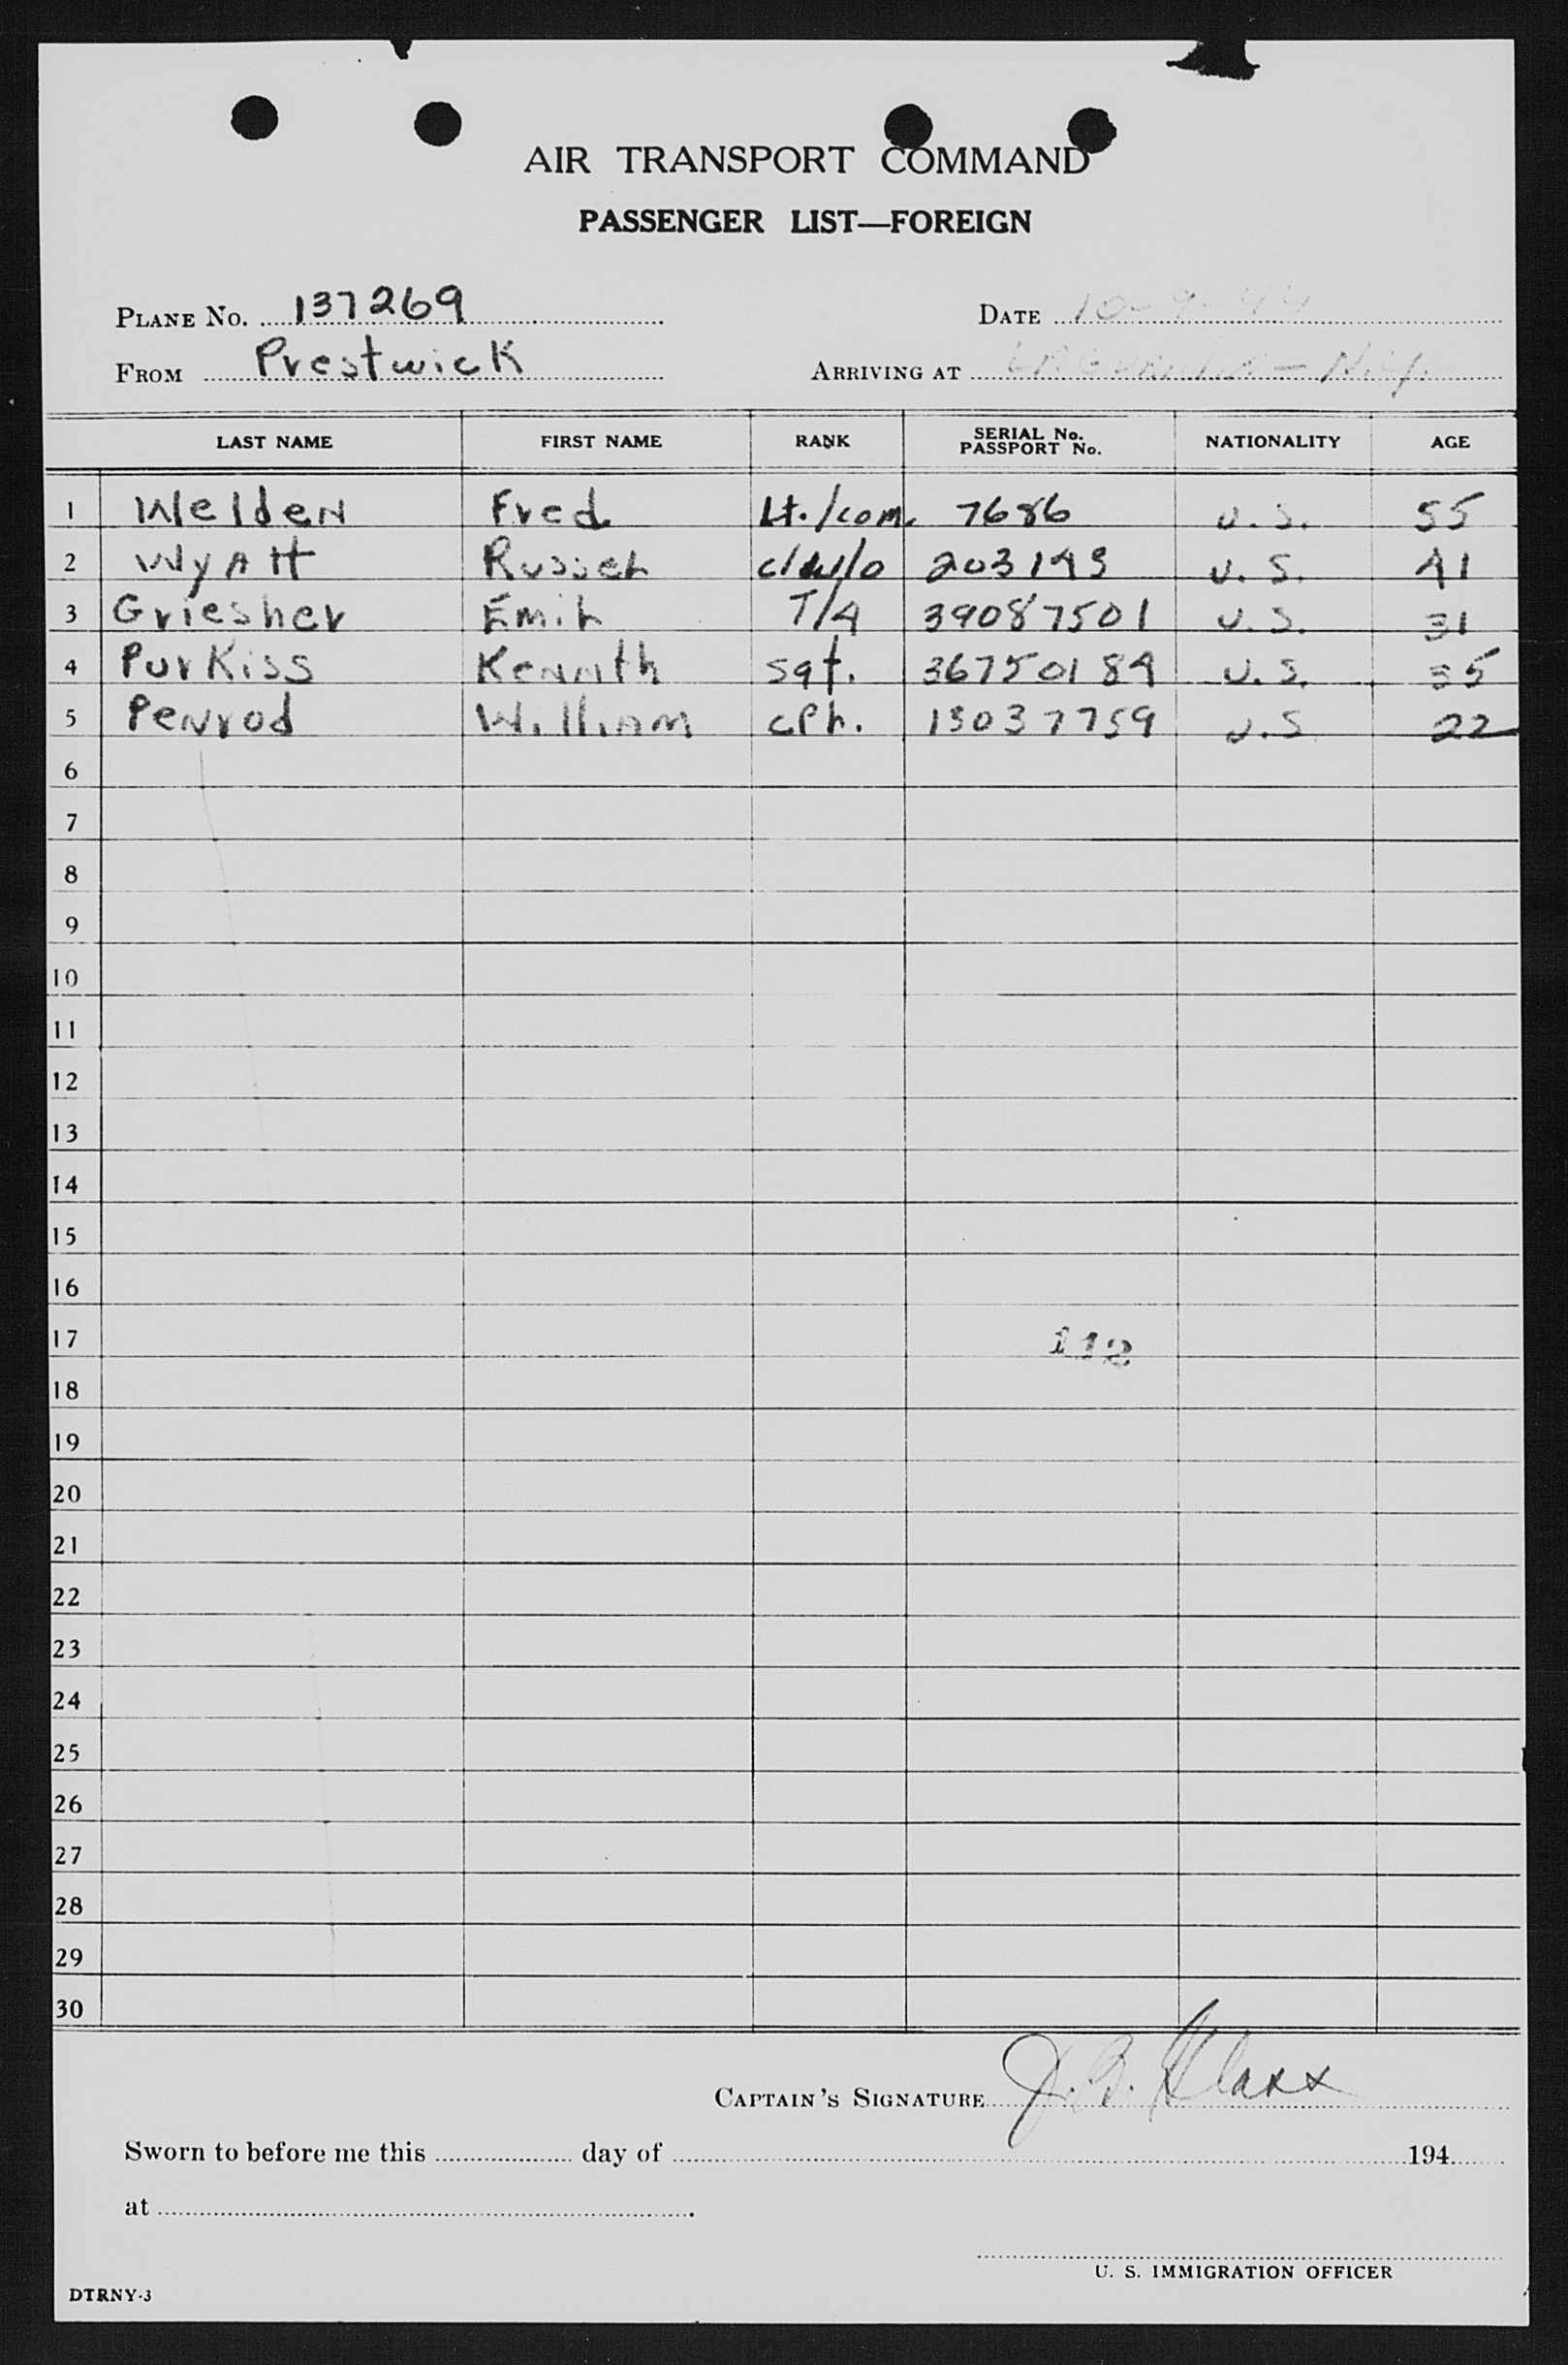 AIR TRANSPORT COMMAND
PASSENGER LIST—FOREIGN
PLANE No. 137269 DATE 10-9-44
FROM Prestwick ARRIVING AT LAGUARDIA — N.Y.
LAST NAME FIRST NAME RANK SERIAL No. PASSPORT No. NATIONALITY AGE
1 Welden Fred Lt./com. 7686 U.S. 55
2 Wyatt Russel c/w/o 203143 U.S. 41
3 Griesher Emil T/4 39087501 U.S. 31
4 Purkiss Kennith sgt. 36750184 U.S. 35
5 Penrod William cpl. 13037759 U.S 22
6
7
8
9
10
11
12
13
14
15
16
17 112
18
19
20
21
22
23
24
25
26
27
28
29
30
CAPTAIN'S SIGNATURE J.G. Klass
Sworn to before me this day of 194
at .
U. S. IMMIGRATION OFFICER
DTRNY-3